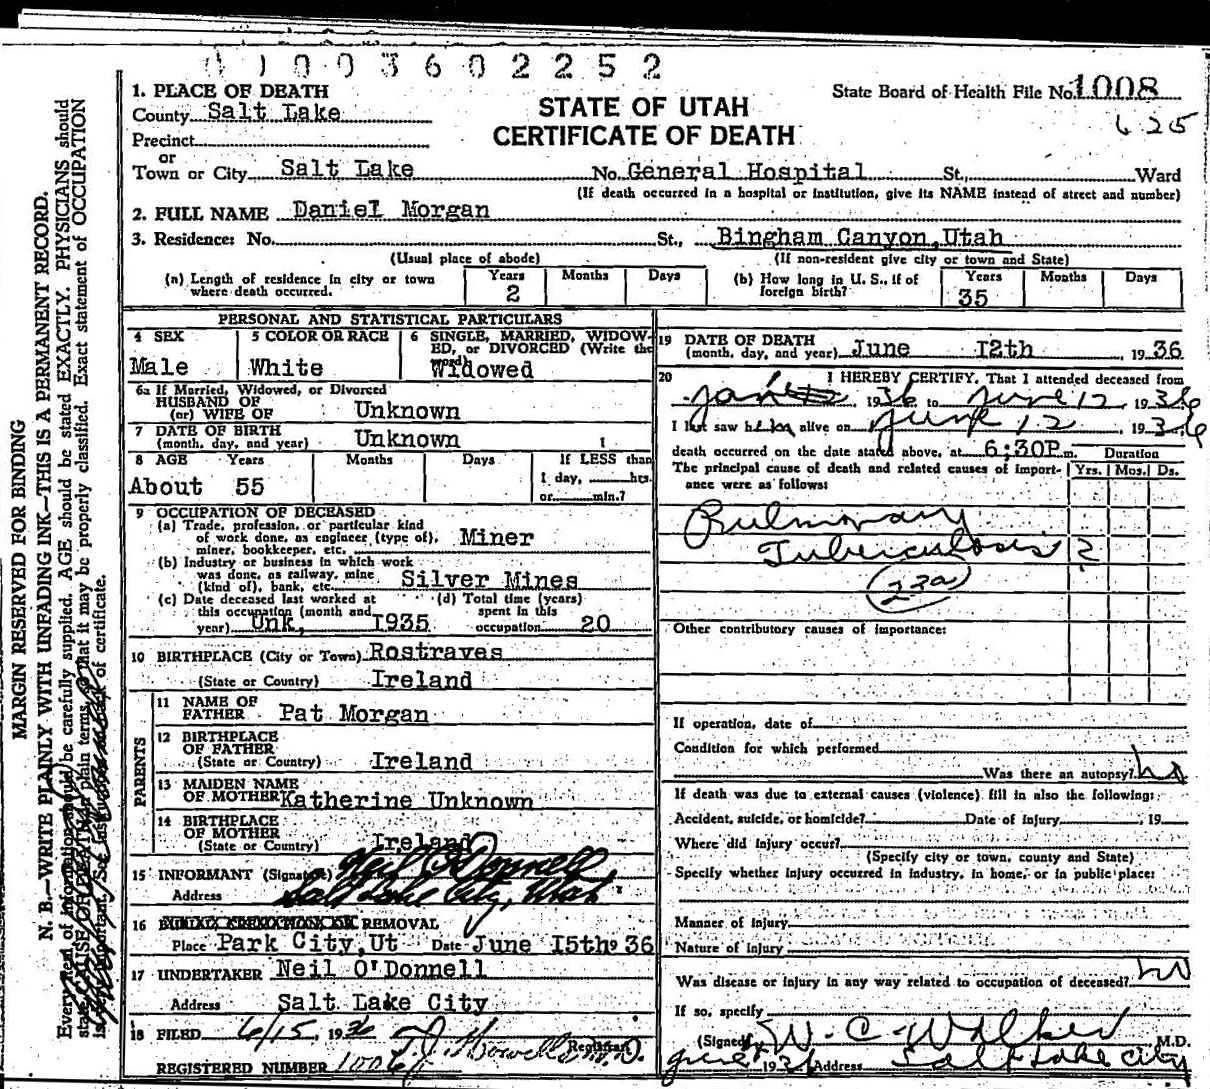 0 1 0 0 3 6 0 2 2 5 2
1. PLACE OF DEATH
County Salt Lake
Precinct
or
Town or City Salt Lake
STATE OF UTAH
CERTIFICATE OF DEATH
State Board of Health File No. 1008
625
No. General Hospital St., Ward
(If death occurred in a hospital or institution, give its NAME instead of street and number)
2. FULL NAME Daniel Morgan
3. Residence: No. St., Bingham Canyon, Utah
(Usual place of abode) (If non-resident give city or town and State)
(a) Length of residence in city or town where death occurred. Years 2 Months Days
(b) How long in U. S., if of foreign birth? Years 35 Months Days
PERSONAL AND STATISTICAL PARTICULARS
4 SEX Male
5 COLOR OR RACE White
6 SINGLE, MARRIED, WIDOWED, or DIVORCED (Write the word) Widowed
6a If Married, Widowed, or Divorced
HUSBAND OF
(or) WIFE OF Unknown
7 DATE OF BIRTH
(month, day, and year) Unknown
8 AGE Years Months Days If LESS than
1 day, hrs.
or min.?
About 55
9 OCCUPATION OF DECEASED
(a) Trade, profession, or particular kind
of work done, as engineer (type of),
miner, bookkeeper, etc. Miner
(b) Industry or business in which work
was done, as railway, mine
(kind of), bank, etc. Silver Mines
(c) Date deceased last worked at
this occupation (month and
year) Unk, 1935
(d) Total time (years)
spent in this
occupation 20
10 BIRTHPLACE (City or Town) Rostraves
(State or Country) Ireland
PARENTS
11 NAME OF
FATHER Pat Morgan
12 BIRTHPLACE
OF FATHER
(State or Country) Ireland
13 MAIDEN NAME
OF MOTHER Katherine Unknown
14 BIRTHPLACE
OF MOTHER
(State or Country) Ireland
15 INFORMANT (Signature) Neil O'Donnell
Address Salt Lake City, Utah
16 BURIAL, CREMATION OR REMOVAL
Place Park City, Ut Date June 15th 9 36
17 UNDERTAKER Neil O'Donnell
Address Salt Lake City
18 FILED 6/15, 1936
Registrar.
REGISTERED NUMBER 1006
19 DATE OF DEATH
(month, day, and year) June 12th, 1936
20 I HEREBY CERTIFY, That I attended deceased from
1936 to June 12 1936
I last saw him alive on June 12, 1936
death occurred on the date stated above, at 6;30P m.
The principal cause of death and related causes of importance were as follows:
Duration
Yrs. Mos. Ds.
Pulmonary
Tuberculosis ?
23a
Other contributory causes of importance:
If operation, date of
Condition for which performed
Was there an autopsy? no
If death was due to external causes (violence) fill in also the following:
Accident, suicide, or homicide? Date of injury , 19
Where did injury occur?
(Specify city or town, county and State)
Specify whether injury occurred in industry, in home, or in public place:
Manner of injury
Nature of injury
Was disease or injury in any way related to occupation of deceased? no
If so, specify
(Signed) W. C. Walker M.D.
1936 Address Salt Lake City
MARGIN RESERVED FOR BINDING
N. B.—WRITE PLAINLY WITH UNFADING INK—THIS IS A PERMANENT RECORD.
Every item of information should be carefully supplied. AGE should be stated EXACTLY. PHYSICIANS should
state CAUSE OF DEATH in plain terms, so that it may be properly classified. Exact statement of OCCUPATION
is important. See instructions on back of certificate.